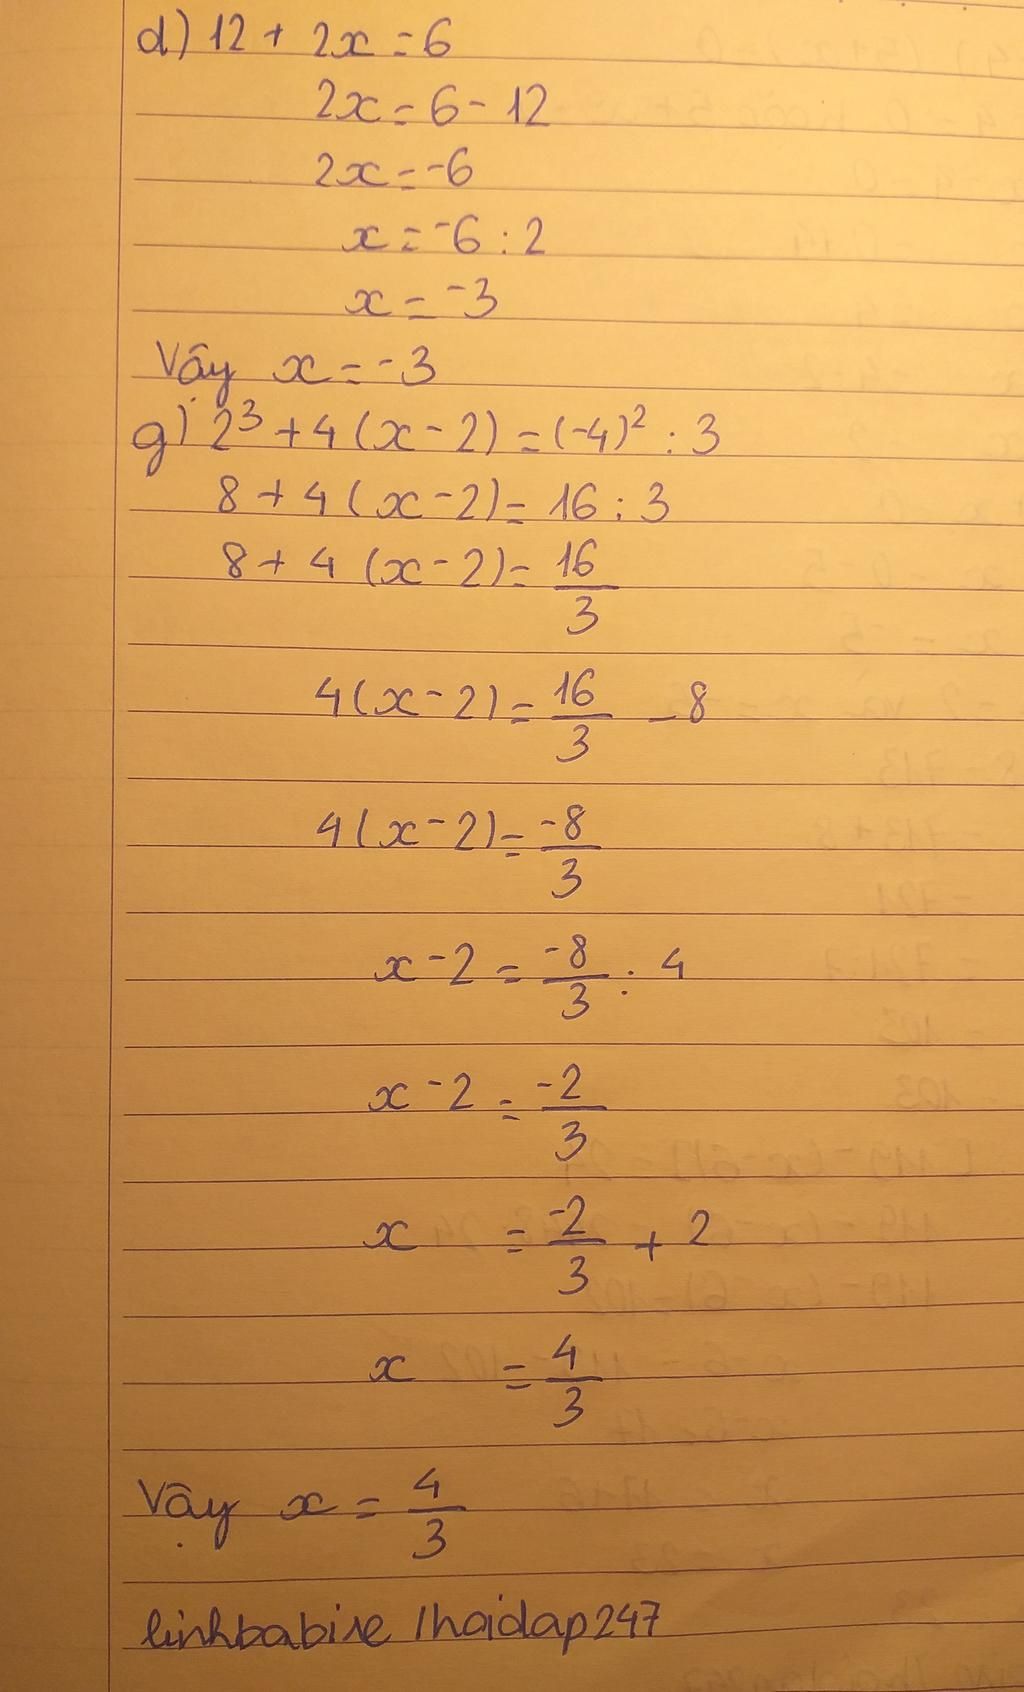 d) 12 + 2x = 6
2x = 6 - 12
2x = -6
x = -6 : 2
x = -3
Vậy x = -3
g) 2³ + 4 (x - 2) = (-4)² : 3
8 + 4 (x - 2) = 16 : 3
8 + 4 (x - 2) = 16/3
4(x - 2) = 16/3 - 8
4(x - 2) = -8/3
x - 2 = -8/3 : 4
x - 2 = -2/3
x = -2/3 + 2
x = 4/3
Vậy x = 4/3
linhbabie /hoidap247